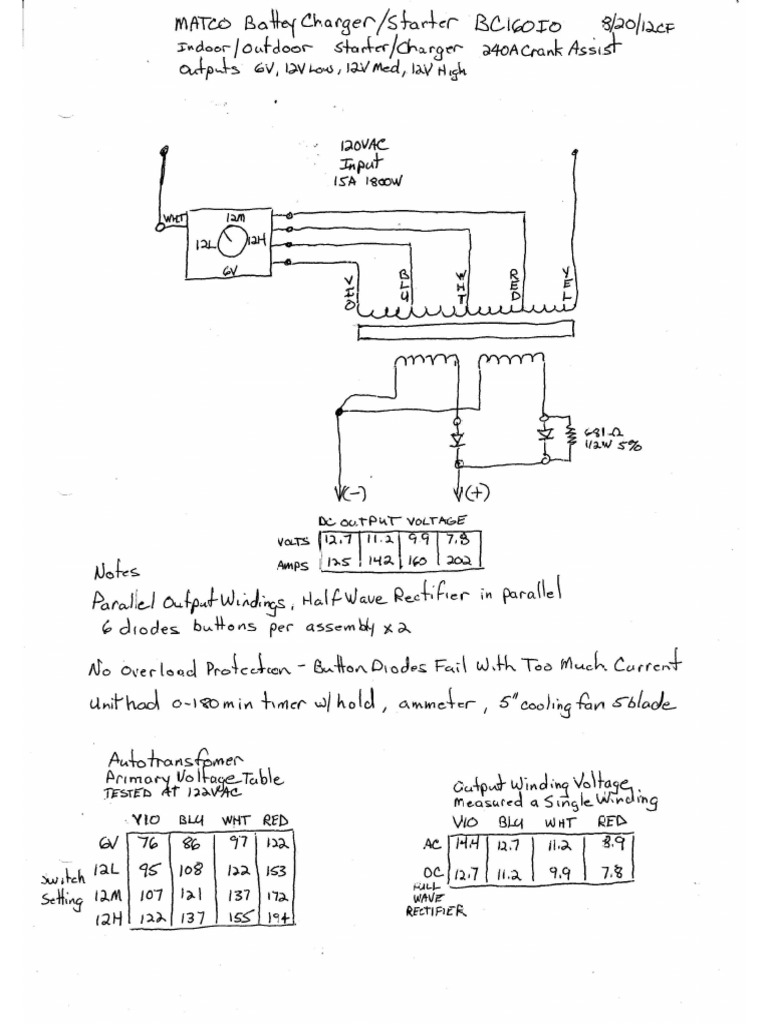 MATCO Battey Charger/Starter BC160IO 8/20/12CF
Indoor/Outdoor Starter/Charger 240A Crank Assist
Outputs 6V, 12V Low, 12V Med, 12V High
120VAC
Input
15A 1800W
WHT
12M
12L
12H
6V
VIO
BLU
WHT
RED
YEL
681Ω
1/2W 5%
(-)
(+)
DC OUTPUT VOLTAGE
VOLTS 12.7 11.2 9.9 7.8
AMPS 125 142 160 202
Notes
Parallel Output Windings, Half Wave Rectifier in parallel
6 diodes buttons per assembly x2
No Overload Protection - Button Diodes Fail With Too Much Current
Unit had 0-180 min timer w/hold, ammeter, 5" cooling fan 5 blade
Autotransfomer
Primary Voltage Table
TESTED AT 122VAC
VIO BLU WHT RED
6V 76 86 97 122
12L 95 108 122 153
12M 107 121 137 172
12H 122 137 155 194
Switch
Setting
Output Winding Voltage
Measured a Single Winding
VIO BLU WHT RED
AC 14.4 12.7 11.2 8.9
DC 12.7 11.2 9.9 7.8
FULL
WAVE
RECTIFIER